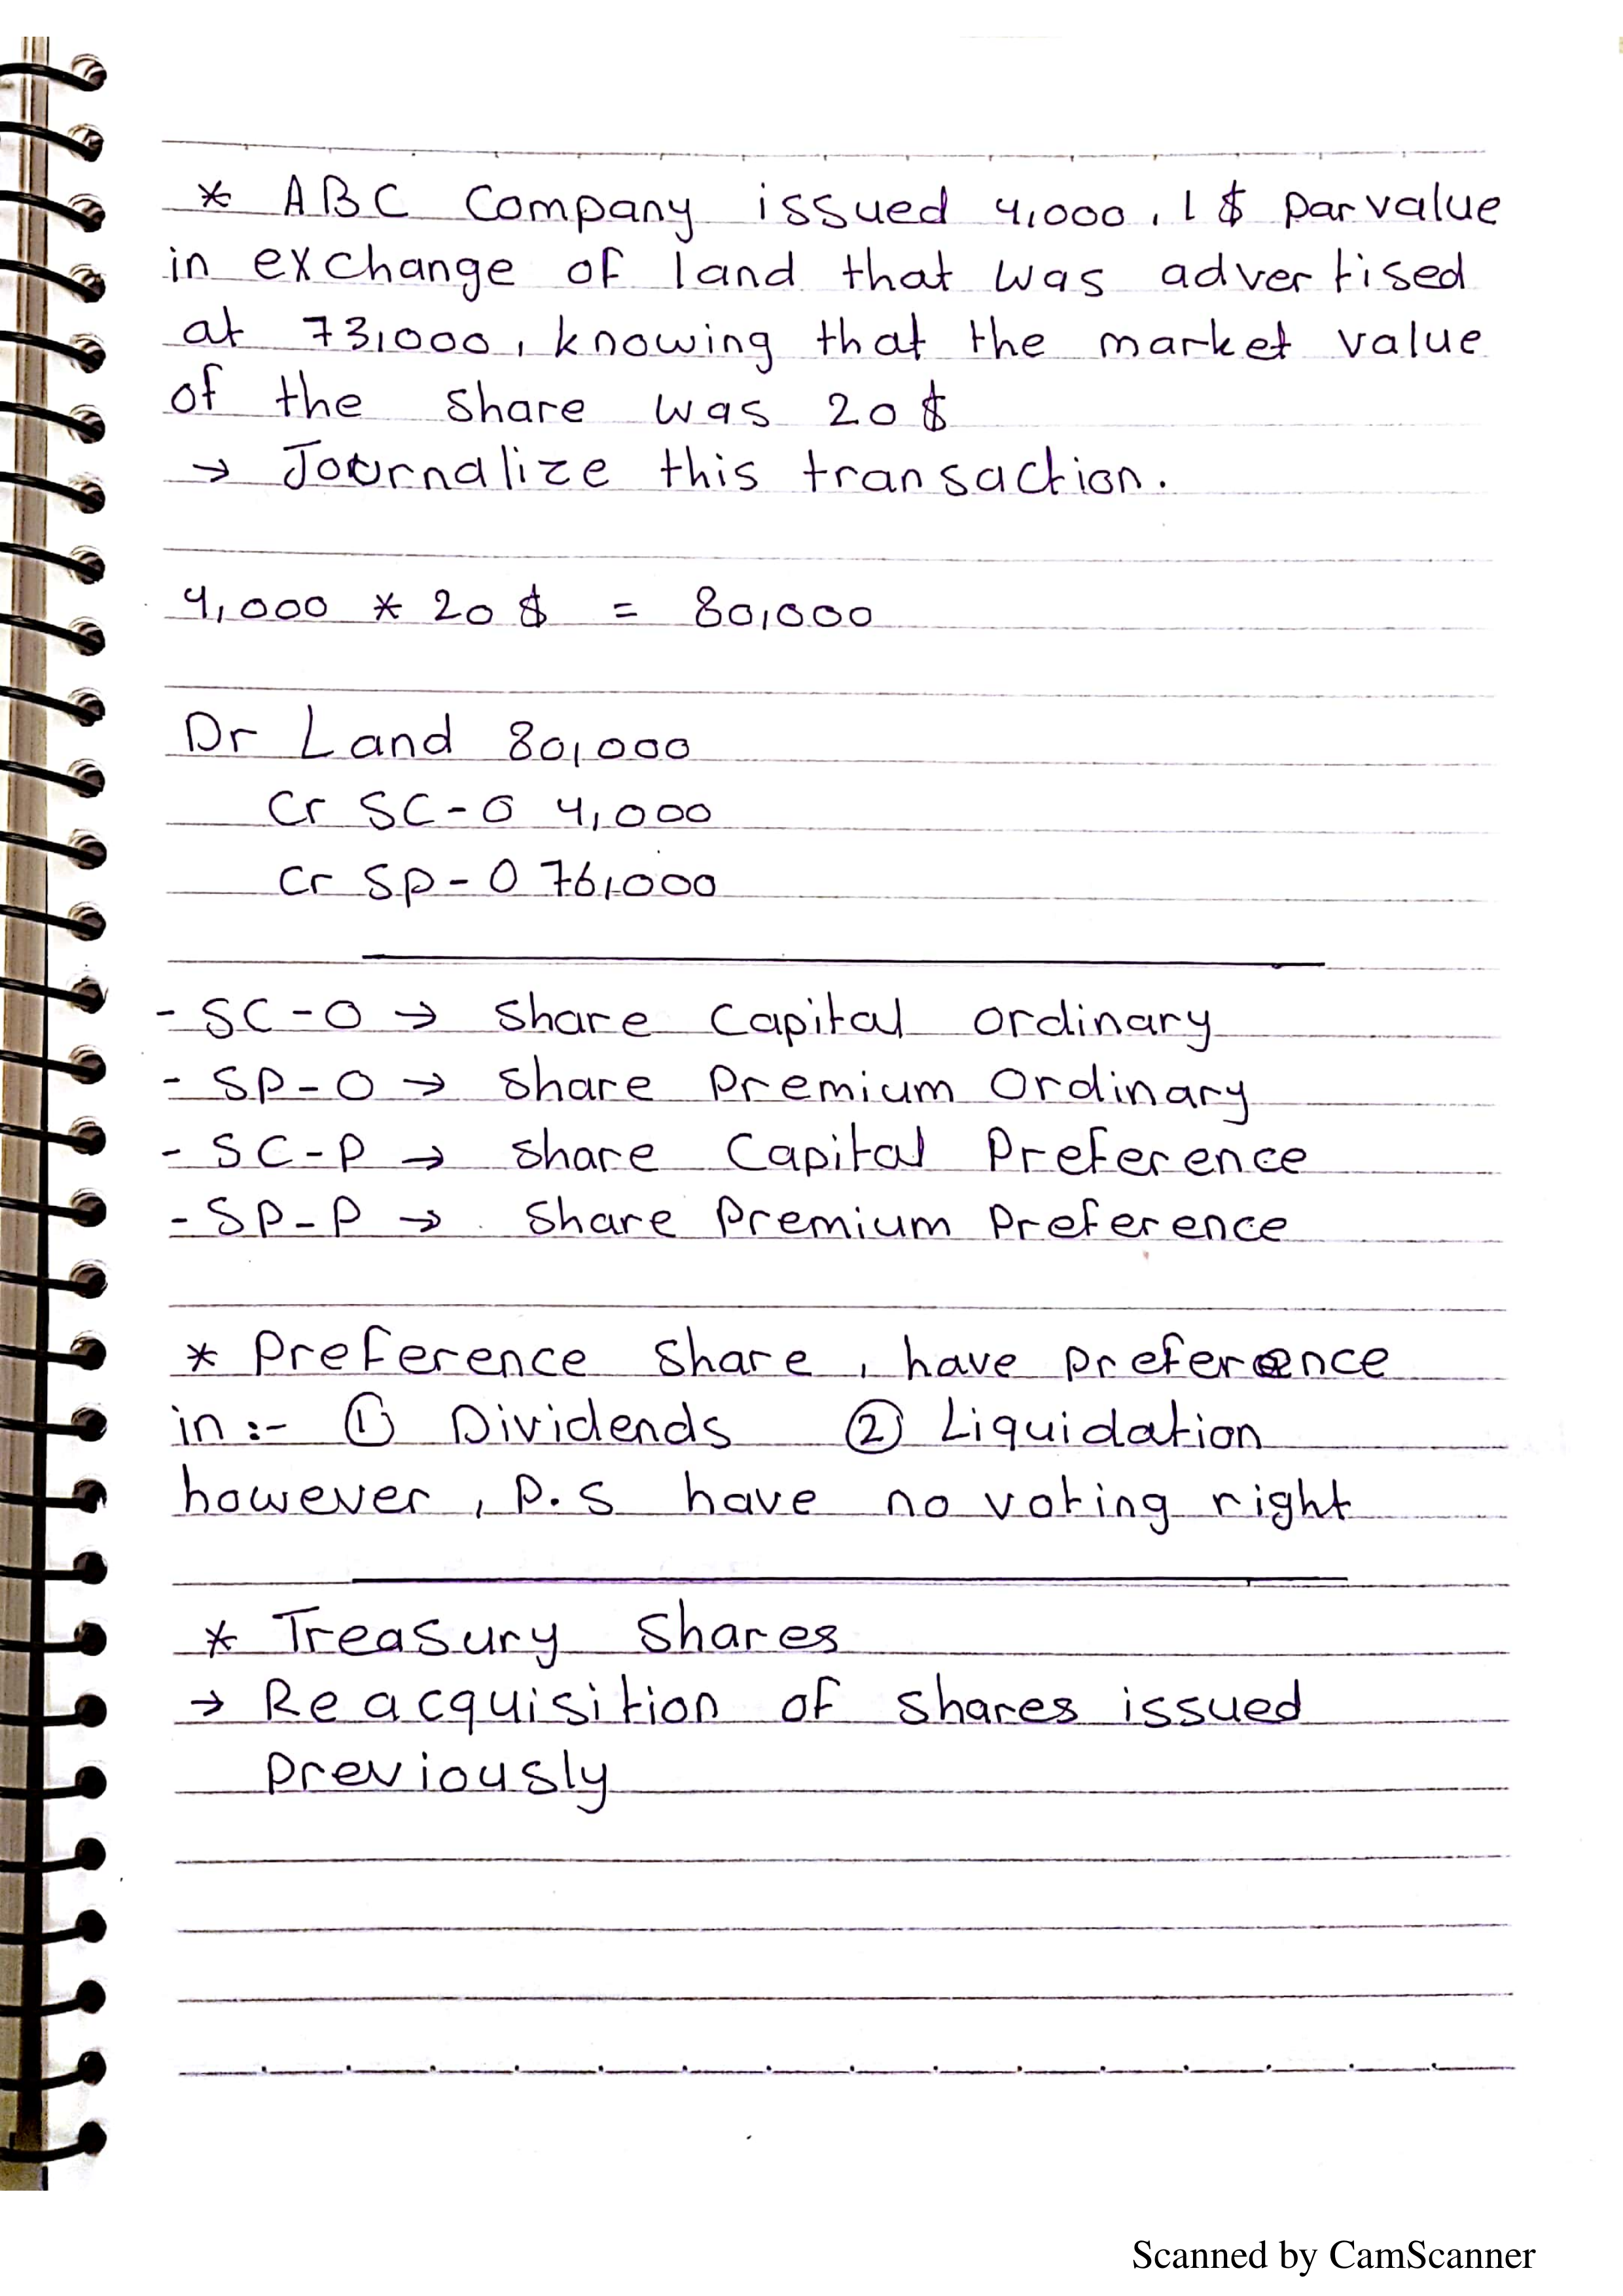 * ABC Company issued 4,000, 1 $ par value
in exchange of land that was advertised
at 73,000, knowing that the market value
of the share was 20 $
→ Journalize this transaction.
4,000 * 20 $ = 80,000
Dr Land 80,000
Cr SC-O 4,000
Cr SP-O 76,000
- SC-O → Share Capital ordinary
- SP-O → Share Premium Ordinary
- SC-P → Share Capital Preference
- SP-P → Share Premium Preference
* Preference Share, have preference
in :- ① Dividends ② Liquidation
however, P.S have no voting right
* Treasury Shares
→ Reacquisition of shares issued
Previously
Scanned by CamScanner